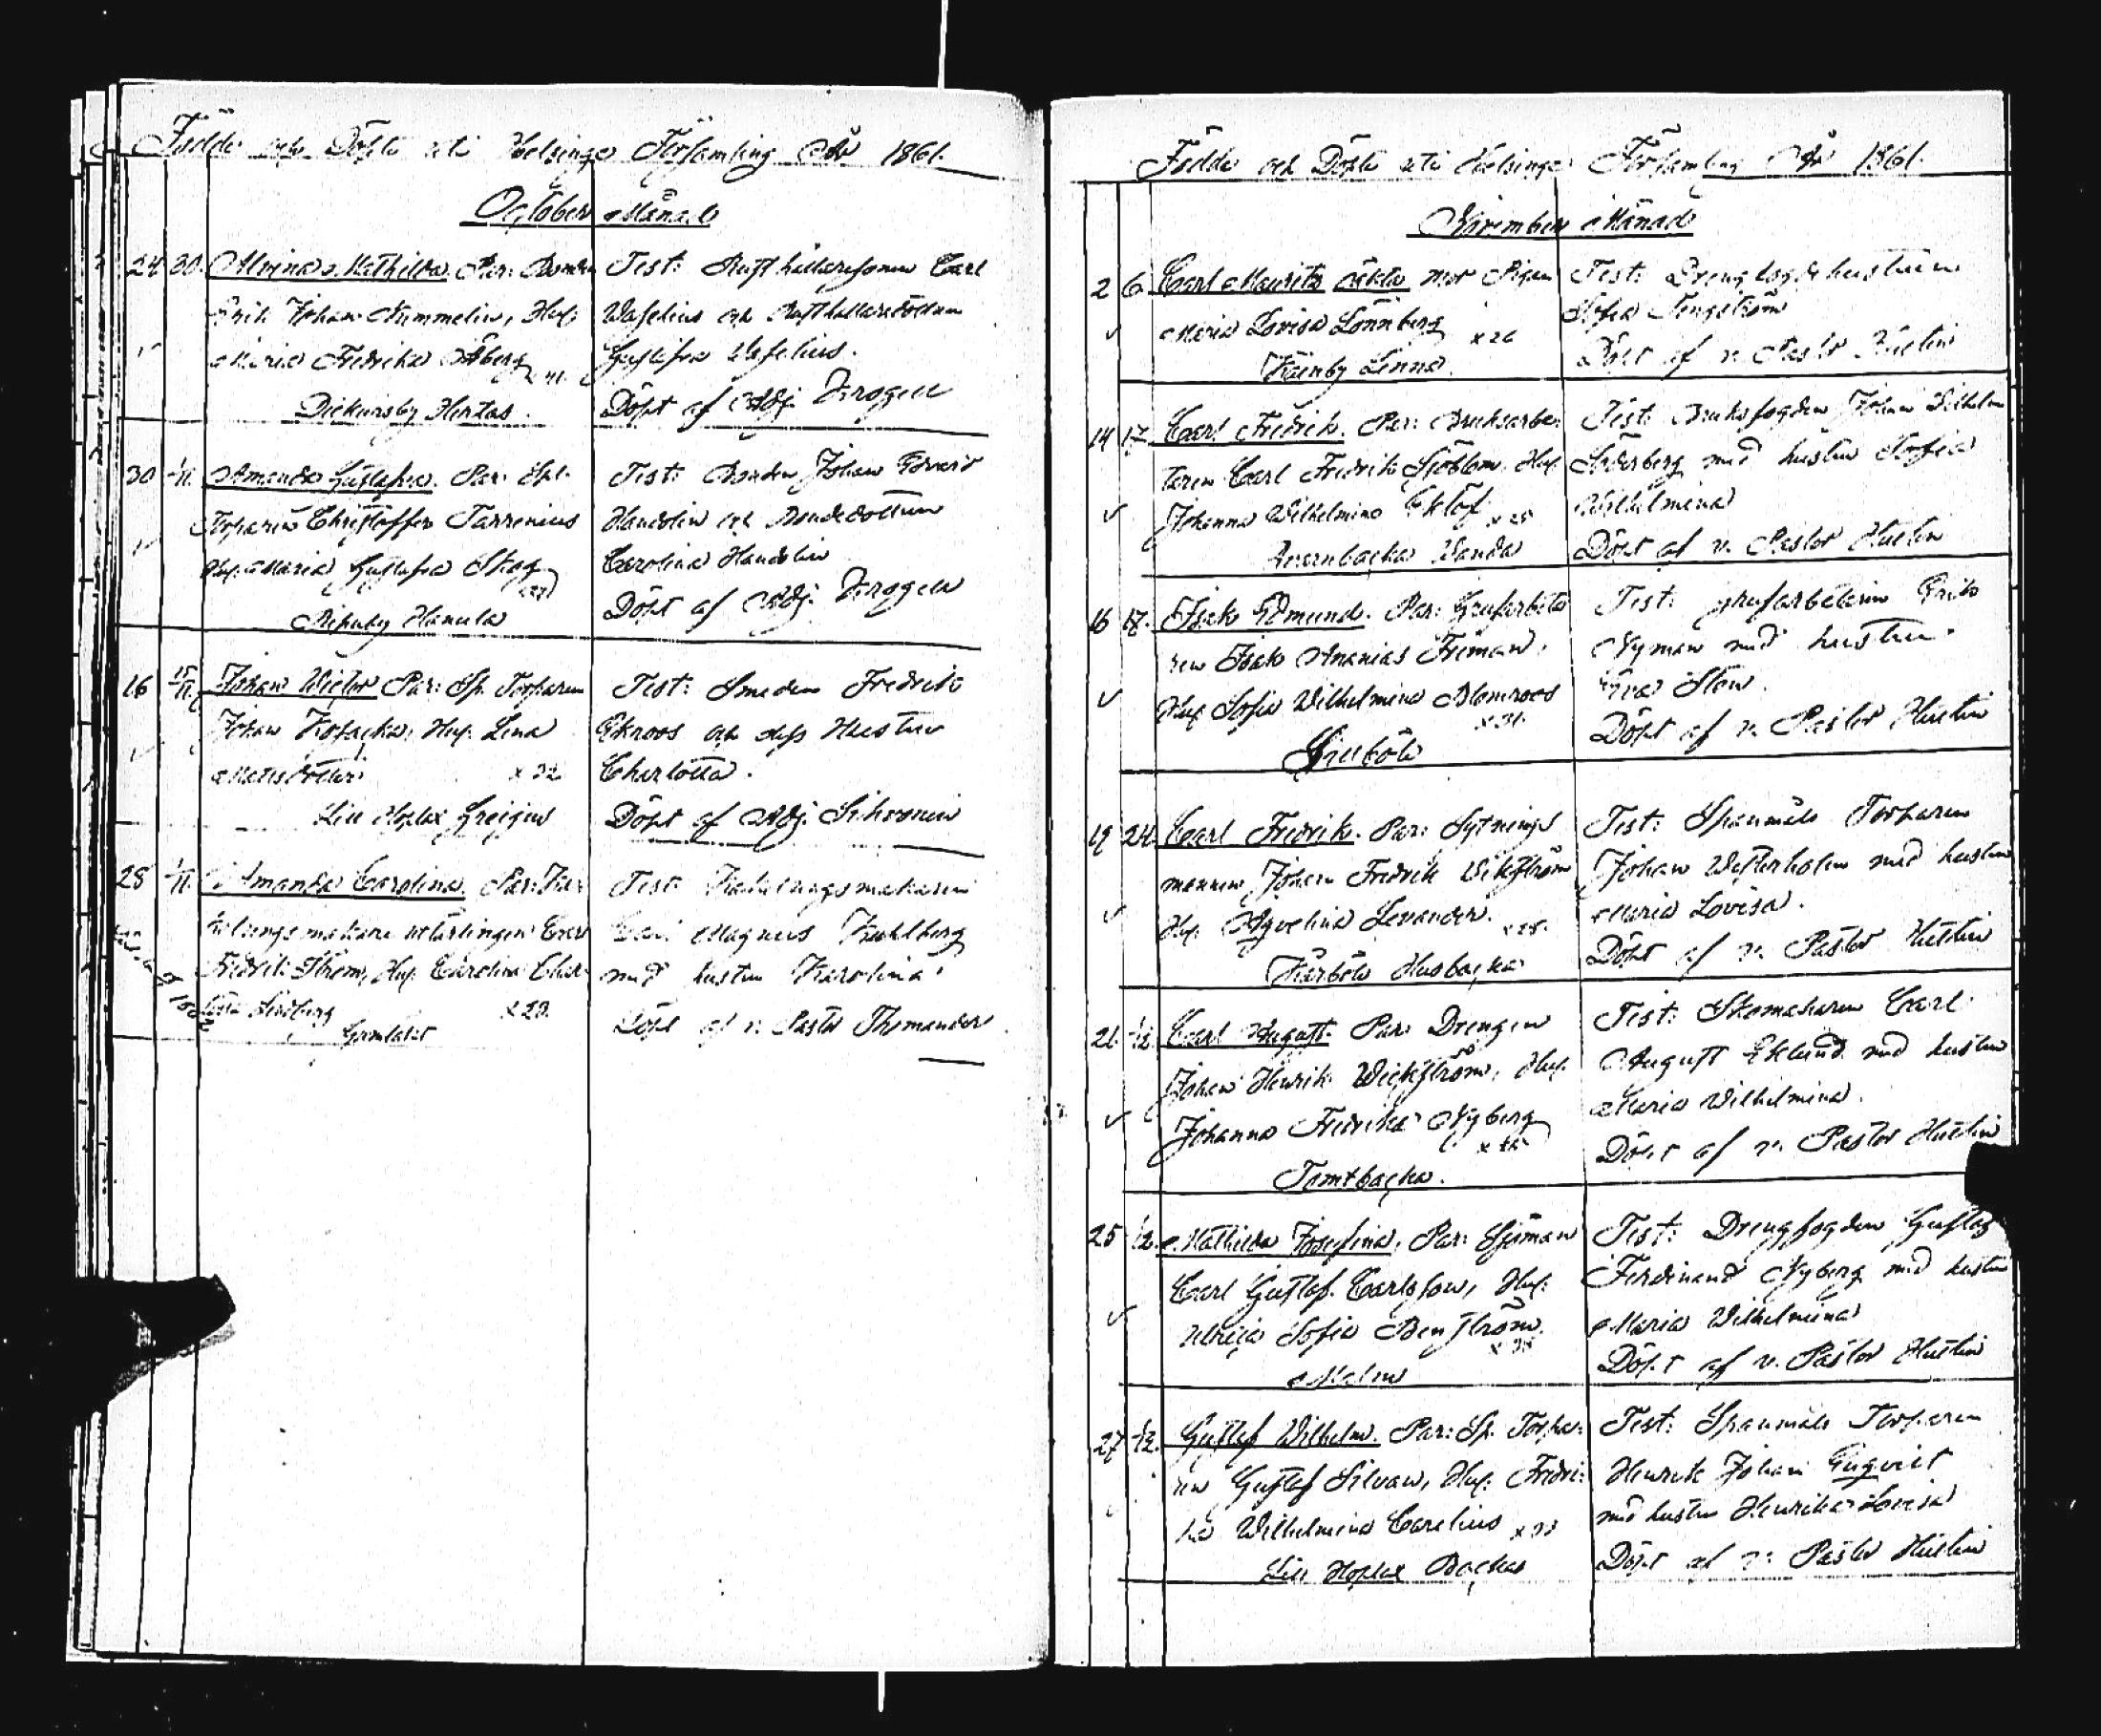 Födde och Döpte uti Helsinge Församling År 1861.
October Månad
24 30. Alvina Mathilda. Par: Bonden
Erik Johan Nummelin, Hus:
Maria Fredrika Åberg
Dickursby Hertas.
Test: Rusthållaresonen Carl
Waselius och Rusthållaredottren
Gustafva Waselius.
Döpt af Adj. Krogell
30 1/11. Amanda Gustafva. Par: Spl.
Torparen Christoffer Tarrenius
Hus. Maria Gustafva Skog
Ripuby Hanula
Test: Bonden Johan Edvard
Handolin och Bondedottren
Carolina Handolin
Döpt af Adj. Krogell
16 15/11. Johan Victor Par: Sp. Torparen
Johan Kosacka, Hus. Lena
Mattsdotter x 32
Lill Hoplax Greijus
Test: Smeden Fredrik
Ekroos och dess Hustru
Charlotta.
Döpt af Adj. Sihvonen
28 1/11. Amanda Carolina. Par:
Fredrik Ström, Hus. Carolina Char-
lotta Lindberg x 23.
Gamlakt
Test:
Magnus Kuhlberg
med hustru Karolina
Döpt af v. Pastor Thomander
Födde och Döpte uti Helsinge Församling År 1861.
November Månad
2 6. Carl Mauritz oäkta mor Pigan
Maria Lovisa Lönnberg x 26
Kånby Linna.
Test: Drengfogdehustrun
Sofia Tengström
Döpt af v. Pastor Hütlin
14 17. Carl Fredrik. Par: Bruksarbe-
taren Carl Fredrik Sjöblom. Hus.
Johanna Wilhelmina Eklöf x 25
Vanda
Test: Bruksfogden Johan Wilhelm
Söderberg med hustru Sofia
Wilhelmina
Döpt af v. Pastor Hütlin
16 17. Isak Edmund. Par: Grufarbeta
ren Isak Ananias Friman,
Hus. Sofia Wilhelmina Blomroos
x 31.
Sillböle
Test: grufarbetaren Erik
Nyman med hustru
Eva Sten.
Döpt af v. Pastor Hütlin
19 24. Carl Fredrik. Par: Sytnings
mannen Johan Fredrik Wikström
Hus. Agvelina Levander. x 25.
Kårböle Husbacka
Test: Spanmåls Torparen
Johan Westerholm med hustru
Maria Lovisa.
Döpt af v. Pastor Hütlin
21. 1/12. Carl August. Par: Drengen
Johan Henrik Wickström, Hus.
Johanna Fredrika Nyberg
Tomtbacka.
Test: Skomakaren Carl
August Eklund med hustru
Maria Wilhelmina.
Döpt af v. Pastor Hütlin
25 1/12. Mathilda Josefina, Par: Sjöman
Carl Gustaf Carlsson, Hus.
Ulrica Sofia Benström.
Malm
Test: Drengfogden Gustaf
Ferdinand Nyberg med hustru
Maria Wilhelmina
Döpt af v. Pastor Hütlin
27 1/12. Gustaf Wilhelm. Par: Sp. Torpa-
ren Gustaf Silvan, Hus. Fredri-
ka Wilhelmina Carelius x 33
Lill Hoplax Backas
Test: Spanmåls Torparen
Henrik Johan Engqvist
med hustru Henrika Lovisa
Döpt af v. Pastor Hütlin